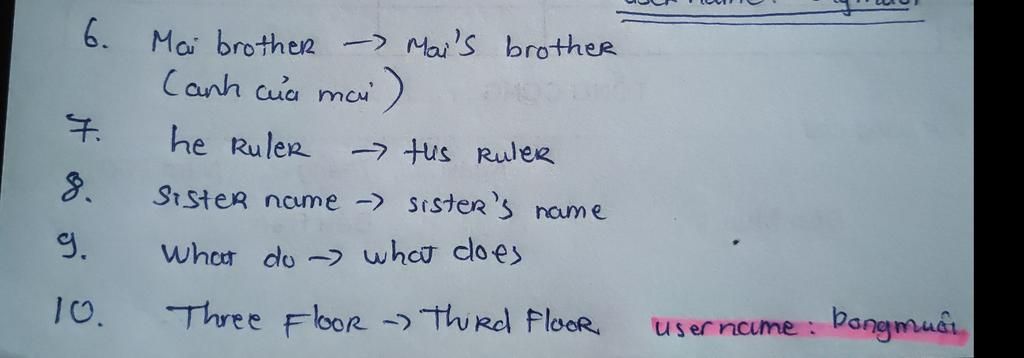 6. Mai brother → Mai's brother
(anh của mai)
7. he Ruler → His Ruler
8. Sister name → sister's name
9. What do → what does
10. Three Floor → Third Floor
username: bongmuối